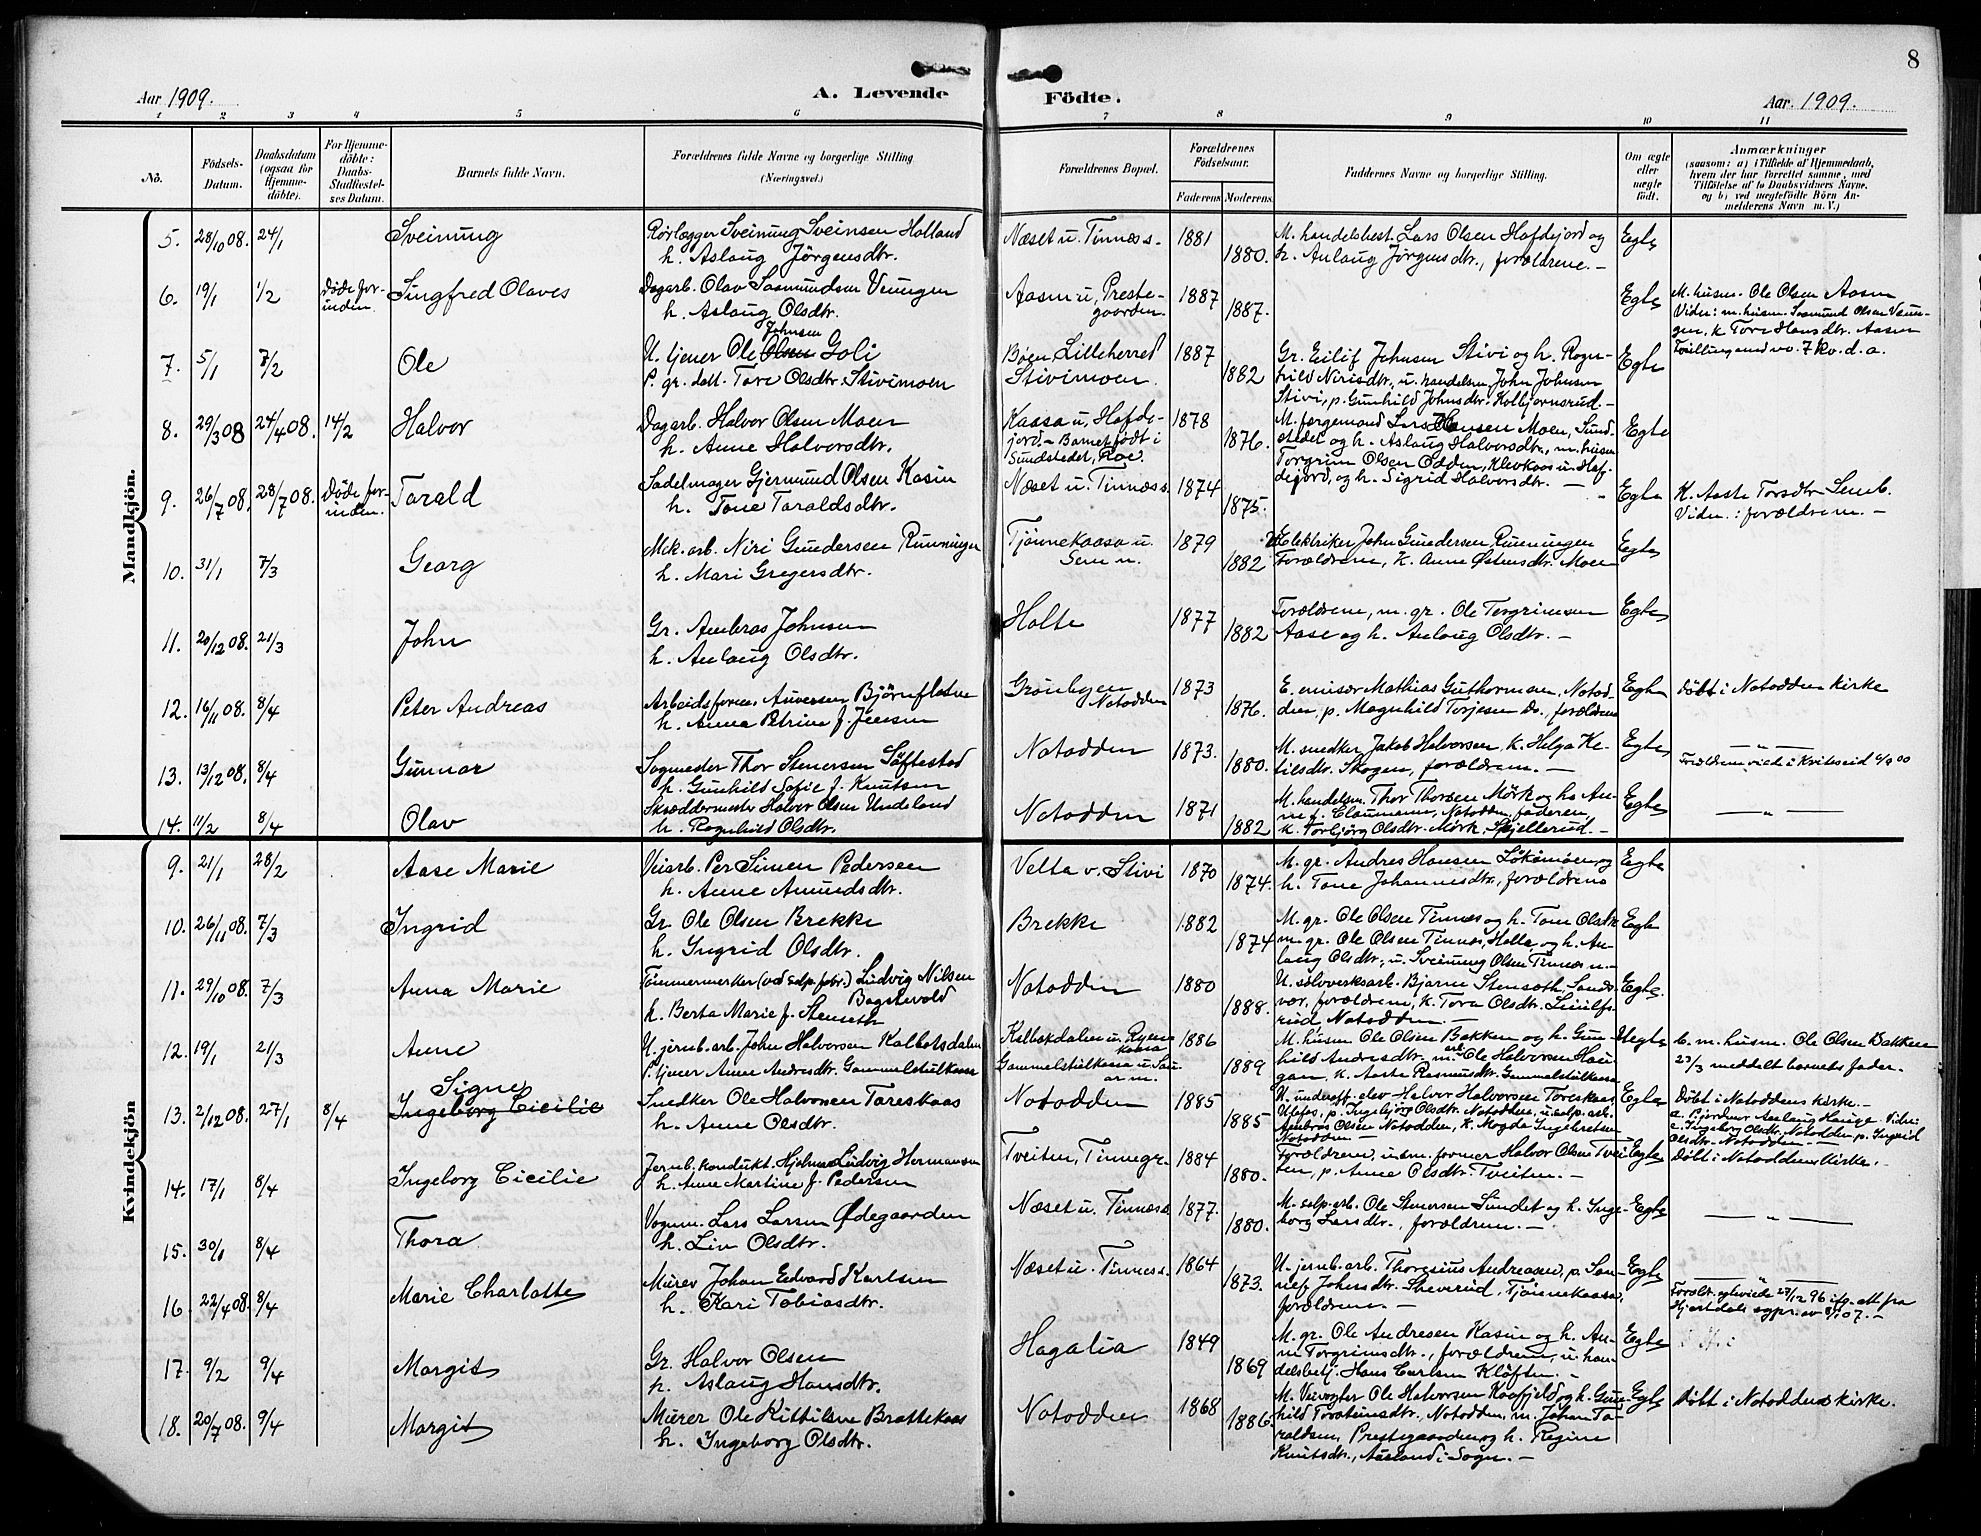 8
Aar 1909.
A. Levende Födte.
Aar 1909.
1 2 3 4 5 6 7 8 9 10 11
No.
Födsels-Datum.
Daabsdatum (ogsaa for Hjemmedöbte).
For Hjemmedöbte: Daabs-Stadfæstelses Datum.
Barnets fulde Navn.
Forældrenes fulde Navne og borgerlige Stilling. (Næringsvei.)
Forældrenes Bopæl.
Forældrenes Födselsaar.
Faderens Moderens
Faddernes Navne og borgerlige Stilling.
Om ægte eller uægte födt.
Anmærkninger
(saasom: a) i Tilfælde af Hjemmedaab, hvem der har forrettet samme, med Tilföielse af to Daabsvidners Navne, og b) ved uægtefödte Börn Anmelderens Navn m. V.)
Mandkjön.
5. 28/10 08. 24/1 Sveinung
Rörlægger Sveinung Sveinsen Holland
h. Aslaug Jörgensdtr.
Næset u. Tinnæs s. 1881 1880.
M. handelsbest. Lars Olsen Hafdejord og
h. Aslaug Jörgensdtr., forældrene. –
Egte
6. 19/1 1/2 Døde forinden. Singfred Olaves
Dagarb. Olav Sasmundsen Venngen
h. Aslaug Olsdtr.
Aasen u. Prestegaarden. 1887 1887.
Egte
M. husm. Ole Olsen Aasen
Vidn: m. husm. Sasmund Olsen
k. Tore Hansdtr. Aasen
7. 5/1 7/2 Ole
U. tjener Ole Olsen Johnsen Goli
P. gr. datt. Tore Olsdtr. Stivimoen
Bøen Lilleherred
Stivimoen. 1887 1882
Gr. Eilif Johnsen Stivi og h. Ragnhild
Nirisdtr., u. handelsm. John Johnsen
Stivi, p. Gunhild Johnsdtr. Kolbjørnsrud. –
Egte
Tvilling med no. 7 kv. d. a.
8. 29/3 08 24/4 08. 14/2 Halvor
Dagarb. Halvor Olsen Moen
h. Anne Halvorsdtr.
Kaasa u. Hafdejord. – Barnet født i
Sundstedet, Roe. 1878 1876.
M. færgemand Lars Hansen Moen, Sundstedet
og h. Aslaug Halvorsdtr., m. husm.
Torgrim Olsen Odden, Klevkaas u. Hafdejord,
og h. Sigrid Halvorsdtr. –
Egte
9. 26/7 08. 28/7 08. Døde forinden. Tarald
Sadelmager Gjermund Olsen Kasin
h. Tone Taraldsdtr.
Næset u. Tinnæs s. 1874 1875.
Egte
K. Aaste Torsdtr. Semb.
Vidn.: forældrene. –
10. 31/1 7/3 Georg
Mek. arb. Niri Gundersen Runningen
h. Mari Gregersdtr.
Tjønnekaasa u.
Sem n. 1879 1882
Elektriker John Gundersen Runningen
Forældrene, K. Anne Østensdtr. Moen
Egte
11. 20/12 08. 21/3 John
Gr. Ambros Johnsen
h. Aslaug Olsdtr.
Holte 1877 1882
Forældrene, m. gr. Ole Torgrimsen
Aase og h. Aslaug Olsdtr. –
Egte
12. 16/11 08. 8/4 Peter Andreas
Arbeidsform. Anversen Bjørnfløtne
h. Anna Petrine f. Jensen
Grønbyen
Notodden 1873 1876.
E. emisær Mathias Guthormsen, Notodden,
p. Magnhild Torjesen do., forældrene
Egte
Döbt i Notodden kirke
13. 13/12 08. 8/4 Gunnar
Sagmester Thor Stenersen Söftestad
h. Gunhild Sofie f. Knutsen
Notodden 1873. 1880.
M. snedker Jakob Halvorsen, k. Helga Ketilsdtr.
Skogen, forældrene. –
Egte
– „ –
Forældrene viet i Kviteseid 6/9 00
14. 11/2 8/4 Olav
Skræddermester Halvor Olsen Undeland
h. Ragnhild Olsdtr.
Notodden 1871 1882
M. handelsm. Thor Thorsen Mörk og h. Anne
f. Claumann, Notodden, faderen,
k. Torbjörg Olsdtr. Mörk, Spjellerud. –
Egte
– „ –
Kvindekjön
9. 21/1 28/2 Aase Marie
Veiarb. Per Simen Pedersen
h. Anne Amundsdtr.
Velta v. Stivi 1870 1874.
M. gr. Andres Hansen Löksmoen, og
h. Tone Johannesdtr., forældrene
Egte
10. 26/11 08. 7/3 Ingrid
Gr. Ole Olsen Brekke
h. Ingrid Olsdtr.
Brekke 1882 1874
M. gr. Ole Olsen Tinnæs og h. Tone Olsdtr.
m. gr. Ole Olsen Tinnæs, Holla, og h. Aslaug
Olsdtr., u. Sveinung Olsen Tinnæs n. –
Egte
11. 29/10 08. 7/3 Anna Marie
Tömmermerker (ved celp. fabr.) Ludvig Nilsen
Bagstevold
h. Berta Marie f. Stenseth
Notodden 1880 1888.
U. sølvverksarb. Bjarne Stenseth, Sandsvær,
forældrene, k. Tora Olsdtr.
Notodden. –
Egte.
12. 19/1 21/3 Anne
U. jernb. arb. John Halvorsen Kalbotsdalen
P. tjener Anne Andresdtr. Gammelstulkaasa
Kalbakdalen u. Ryenkaasa
Gammelstulkaasa u. Sauar m. 1886 1889
M. husm Ole Olsen Bakken og h. Gunhild
Andresdtr., m. arb. Ole Halvorsen Haugan,
k. Aaste Rasmusdtr. Gammelstulkaasa
Uegte
C. m. husm. Ole Olsen Bakken
27/3 meddelt barnets fader.
13. 2/12 08. 27/1 8/4 Signe
Ingeborg Cicilie
Snedker Ole Halvorsen Tareskaas
h. Anne Olsdtr.
Notodden 1885 1885
U. underoff. elev Halvor Halvorsen Toreskaas,
p. Ingebjörg Olsdtr. Notodden, u. celp. arb.
Ambros Olsen Notodden, k. Magda Ingebretsen
Notodden –
Egte
Döbt i Notoddens kirke. –
a. Jordmor Aaslaug Hauge. Vidn:
k. Ingeborg Olsdtr. Notodden p. Ingrid
Olsdtr. Notodden –
14. 17/1 8/4 Ingeborg Cicilie
Jernb. kondukt. Hjalmar Ludvig Hermansen
h. Anne Martine f. Pedersen
Tveiten, Tinnegr. 1884 1880.
Forældrene, u. sm. former Halvor Olsen Tveiten,
p. Anne Olsdtr. Tveiten. –
Egte
Döbt i Notoddens kirke.
15. 30/1 8/4 Thora
Vognm. Lars Larsen Ødegaarden
h. Liv Olsdtr.
Næset u. Tinnæs s. 1877. 1880.
M. celp. arb. Ole Stenersen Sundet og h. Ingeborg
Larsdtr., forældrene. –
Egte
– „ –
16 22/4 08. 8/4 Marie Charlotte
Murer Johan Edvard Karlsen
h. Kari Tobiasdtr.
Næset u. Tinnæs s. 1864 1873.
U. jernb. arb. Thorgsius Andreasen, p.
Johansdtr. Sneverud, Tjønnekaasa,
forældrene. –
Egte
Foræld. egteviede 27/12 96 ifg. att. fra
Hjertdals sogpr. av 8/1 07. –
17. 9/2 9/4 Margit
Gr. Halvor Olsen
p. Aslaug Hansdtr.
Hagalia 1849 1869
M. gr. Ole Andresen Kasin og h. Anne
Torgrimsdtr., forældrene, u. handelsbetj.
Hans Carlsen Klöften. –
Egte
18. 20/7 08. 9/4 Margit
Murer Ole Kittilsen Brattekaas
h. Ingeborg Olsdtr.
Notodden 1868 1886.
M. Veivogter Ole Halvorsen Kaafjeld og h. Gunhild
Torsteinsdtr., Notodden, m. Johan Taraldsen,
Prestegaarden og h. Regine
Knutsdtr., Aurland i Sogn. –
Egte
Döbt i Notoddens kirke.